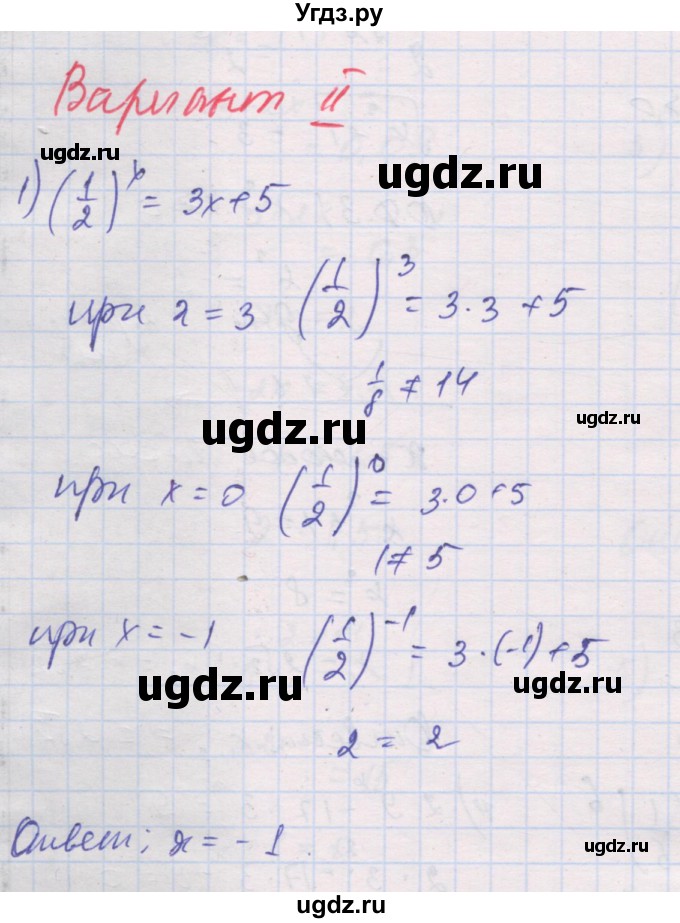 Угдз.ру
Вариант II
ugdz.ru
1) (1/2)^x = 3x+5
ugdz.ru
при x = 3 (1/2)^3 = 3·3 + 5
1/8 ≠ 14
ugdz.ru
ugdz.ru
при x = 0 (1/2)^0 = 3·0+5
1 ≠ 5
при x = -1 (1/2)^-1 = 3·(-1)+5
ugdz.ru
ugdz.ru
2 = 2
Ответ: x = -1.
ugdz.ru
ugdz.ru